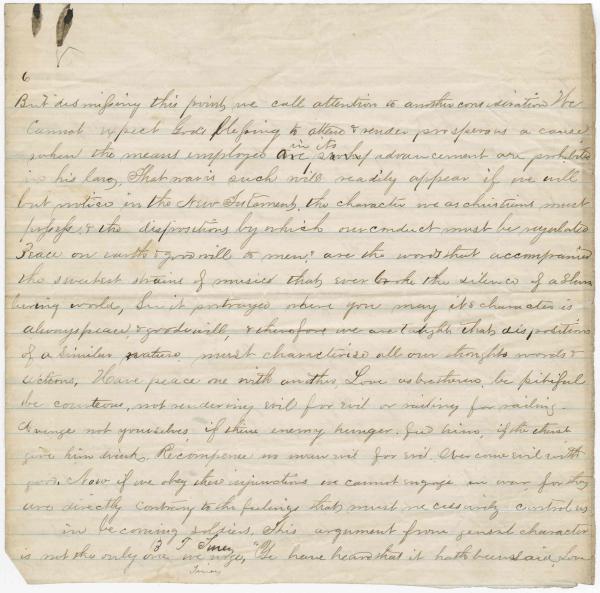 6
But dismissing this point, we call attention to another consideration We
cannot expect God's blessing to attend & render prosperous a cause
when the means employed in its advancement are prohibited
in his law, That war is such will readily appear if we will
but notice in the New Testament, the character we as christians must
possess, & the dispositions by which our conduct must be regulated
Peace on earth & good will to men; are the words that accompanied
the sweetest strains of music that ever broke the silence of a slum
bering world, See it portrayed where you may its character is
always peace, & good will, & therefore we are taught that dispositions
of a similar nature must characterise all our thoughts words &
actions. Have peace one with another, Love as brethren, be pitiful
be courteous, not rendering evil for evil or railing for railing.
Avenge not yourselves, if thine enemy hunger feed him, if he thirst
give him drink, Recompense no man evil for evil. Overcome evil with
good. Now if we obey these injunctions we cannot engage in war, for they
are directly contrary to the feelings that must necessarily control us
in becoming soldiers, This argument from general character
3 T. Tiney
is not the only one we urge, "Ye have heard that it hath been said, Love